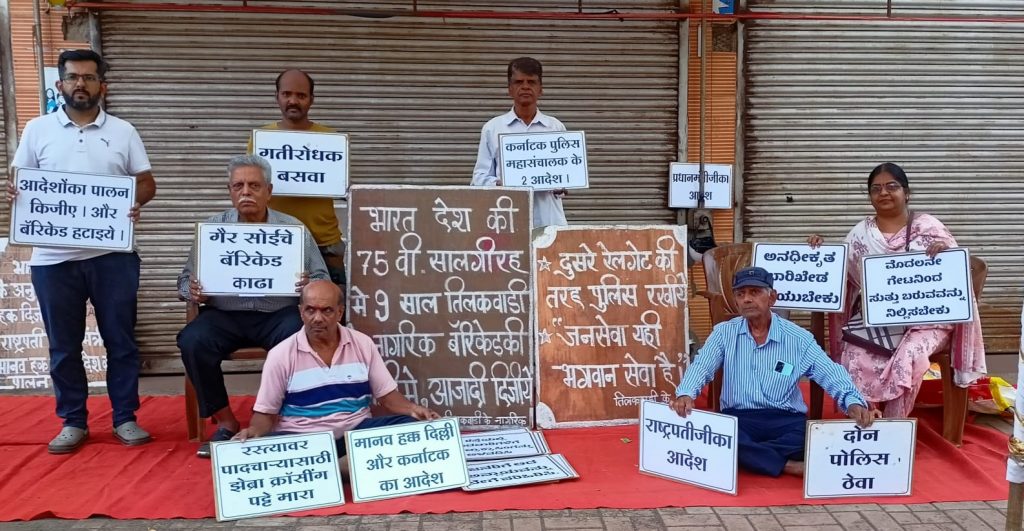 आदेशोंका पालन
किजीए। और
बॅरिकेड हटाइये।
गतीरोधक
बसवा
कर्नाटक पुलिस
महासंचालक के
2 आदेश।
प्रधानमंत्रीजीका
आदेश
गैर सोईचे
बॅरिकेड
काढा
भारत देश की
75 वी. सालगीरह
मे 9 साल तिलकवाडी
नागरिक बॅरिकेडकी
आजादी दिजीये
दुसरे रेलगेट की
तरह पुलिस रखीये
"जनसेवा यही
भगवान सेवा है"
तिलकवाडी के
ಅನಧೀಕೃತ
ಬಾರಿಖೇಡ
ಮೊದಲನೇ
ಗೇಟನಿಂದ
ಸುತ್ತು ಬರುವವನ್ನು
ನಿಲ್ಲಿಸಬೇಕು
रस्त्यावर
पादचाऱ्यासाठी
झेब्रा क्रॉसींग
पट्टे मारा
मानव हक्क दिल्ली
और कर्नाटक
का आदेश
राष्ट्रपतीजीका
आदेश
दोन
पोलिस
ठेवा